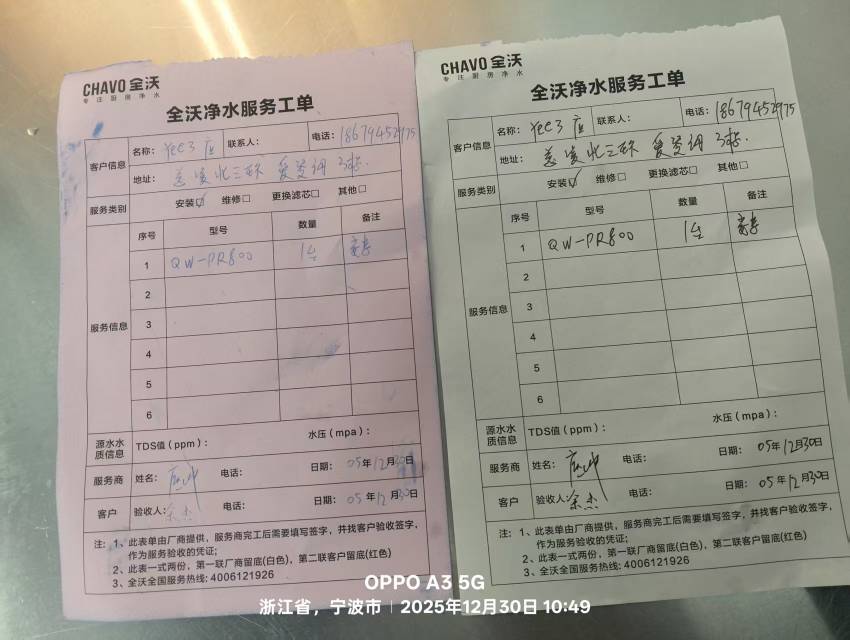 CHAVO 全沃
专注厨房净水
全沃净水服务工单
客户信息
名称: yee3店 联系人: 电话: 18679452975
地址: 慈溪北三环 3栋.
服务类别 安装☑ 维修□ 更换滤芯□ 其他□
服务信息
序号 型号 数量 备注
1 QW-PR800 1台
2
3
4
5
6
源水水质信息 TDS值(ppm): 水压(mpa):
服务商 姓名: 电话: 日期: 05年12月30日
客户 验收人: 余杰 电话: 日期: 05年12月30日
注: 1、此表单由厂商提供,服务商完工后需要填写签字,并找客户验收签字,
作为服务验收的凭证;
2、此表一式两份,第一联厂商留底(白色),第二联客户留底(红色)
3、全沃全国服务热线: 4006121926
CHAVO 全沃
专注厨房净水
全沃净水服务工单
客户信息
名称: yee3店 联系人: 电话: 18679452975
地址: 慈溪北三环 3栋.
服务类别 安装☑ 维修□ 更换滤芯□ 其他□
服务信息
序号 型号 数量 备注
1 QW-PR800 1台
2
3
4
5
6
源水水质信息 TDS值(ppm): 水压(mpa):
服务商 姓名: 电话: 日期: 05年12月30日
客户 验收人: 余杰 电话: 日期: 05年12月30日
注: 1、此表单由厂商提供,服务商完工后需要填写签字,并找客户验收签字,
作为服务验收的凭证;
2、此表一式两份,第一联厂商留底(白色),第二联客户留底(红色)
3、全沃全国服务热线: 4006121926
OPPO A3 5G
浙江省,宁波市 | 2025年12月30日 10:49